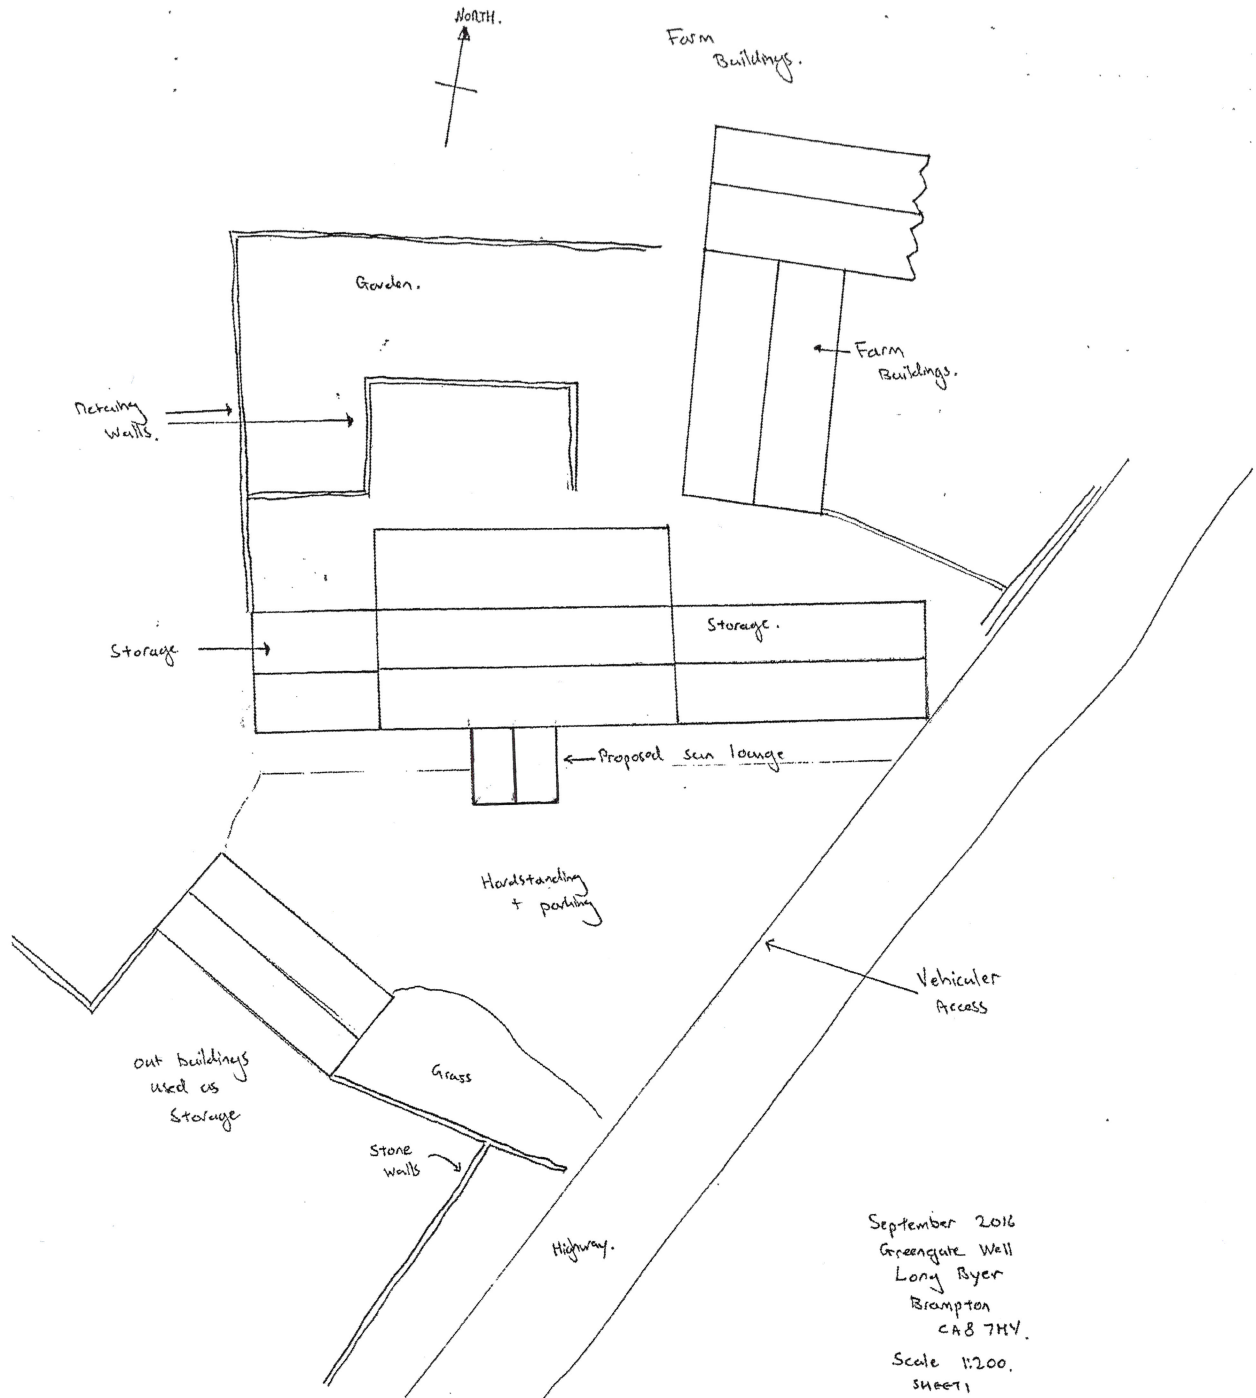 NORTH.
Farm
Buildings.
Garden.
Farm
Buildings.
Retaining
Walls.
Storage.
Storage
Proposed sun lounge
Hardstanding
+ parking
Vehicular
Access
out buildings
used as
Storage
Grass
Stone
walls
Highway.
September 2016
Greengate Well
Long Byer
Brampton
CA8 7HY.
Scale 1:200.
SHEET 1